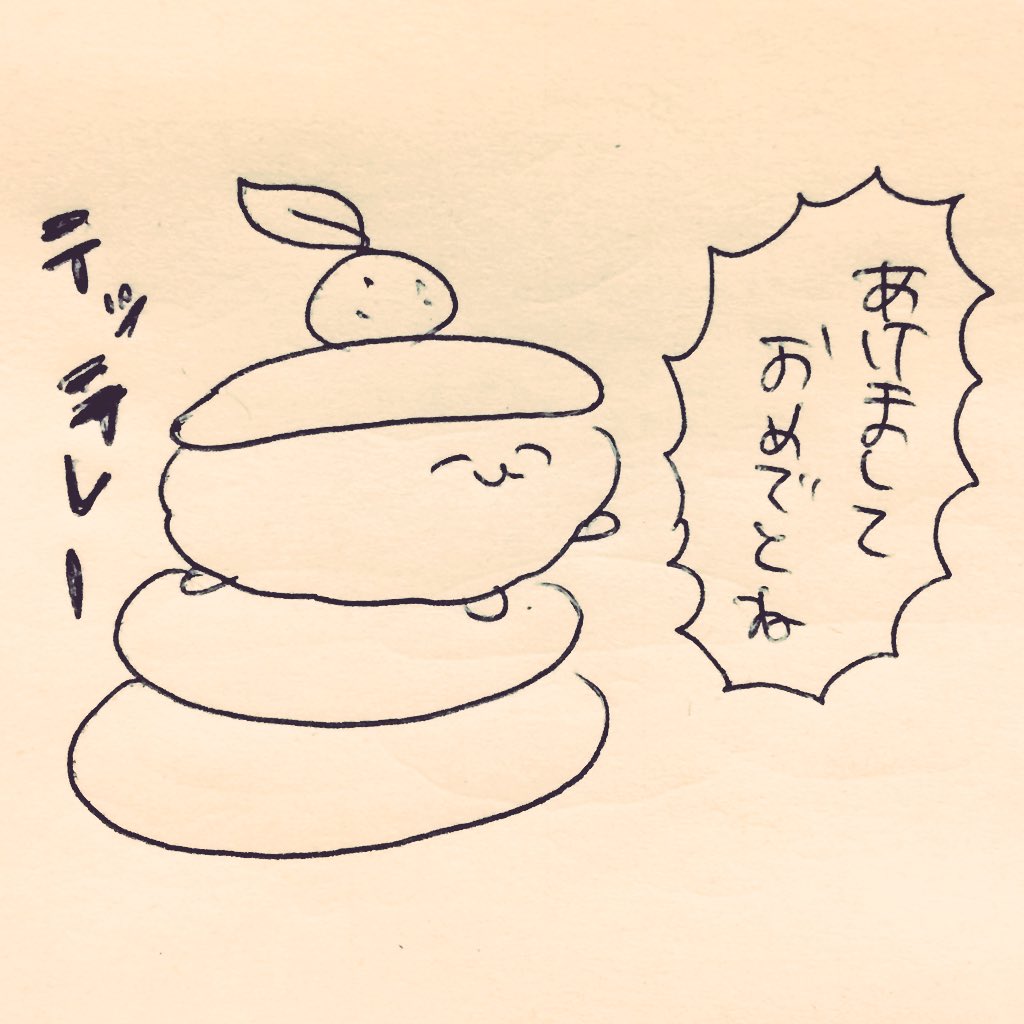 あけまして
おめでとね
テッテレー